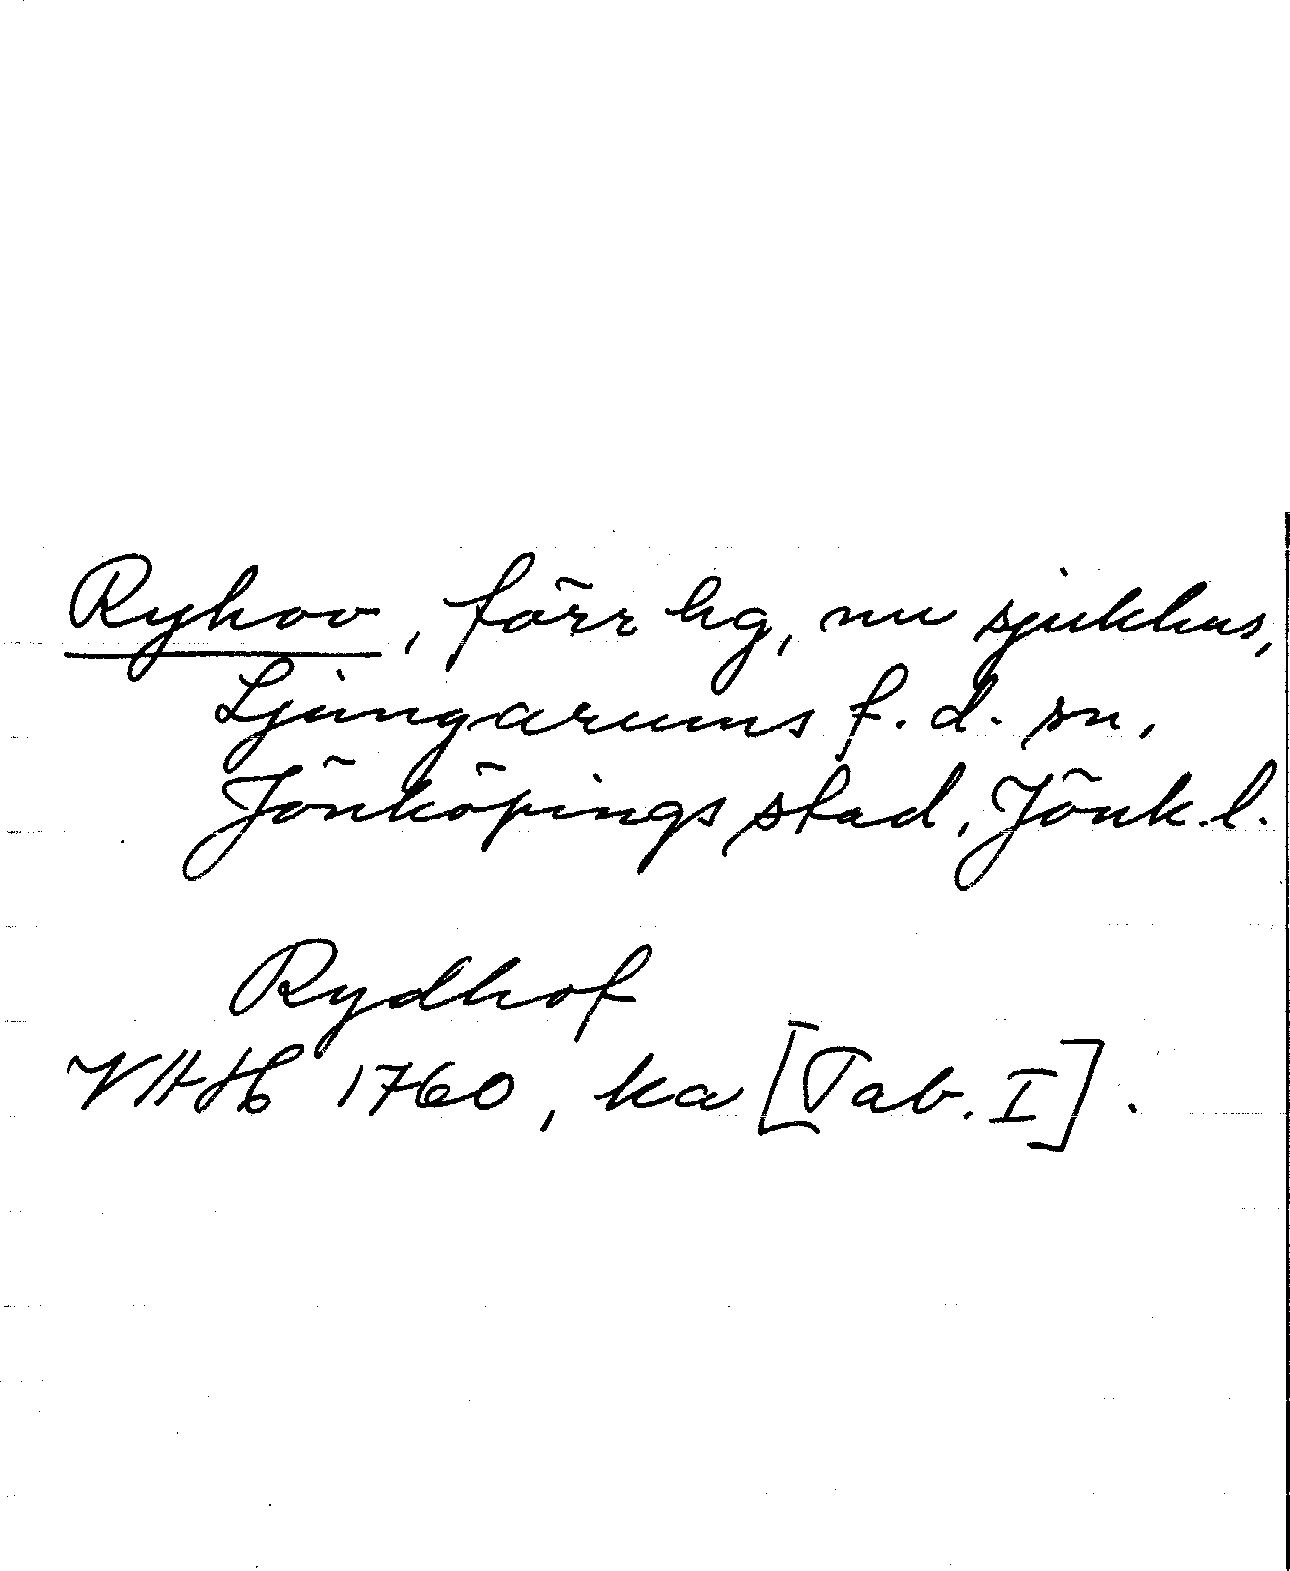 Ryhov, förr hg, nu sjukhus,
Ljungarums f.d. sn,
Jönköpings stad, Jönk.l.
Rydhof
VHAH 1760, ka [Tab. I].